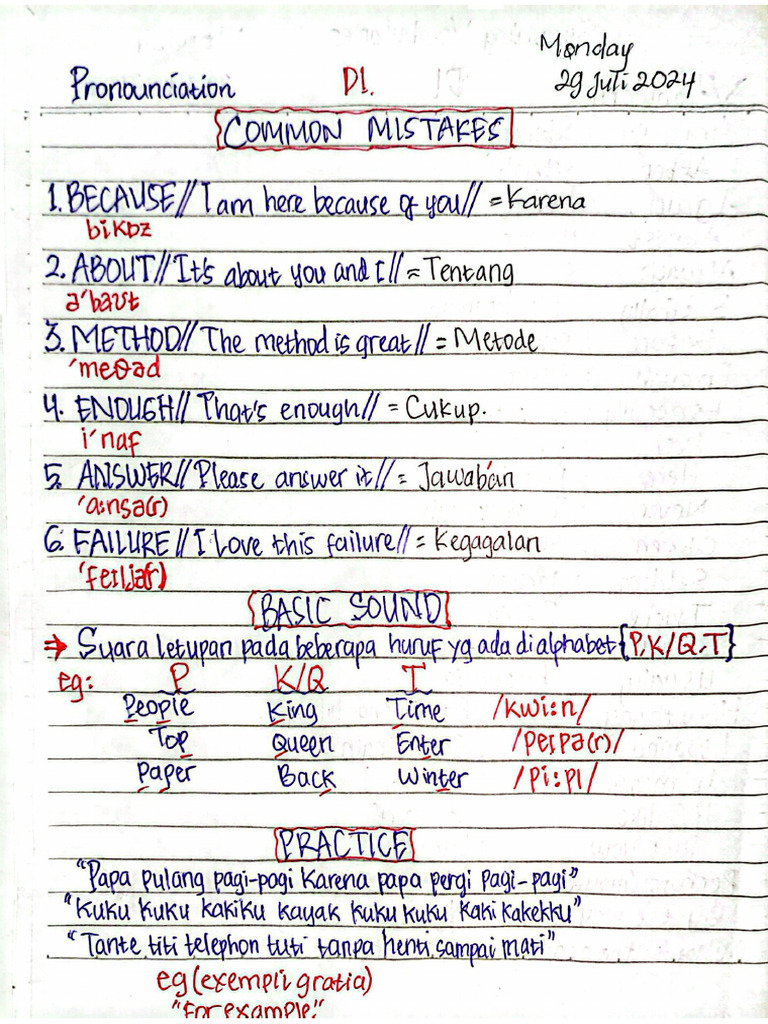 Monday
Pronounciation D1. 29 Juli 2024
COMMON MISTAKES
1. BECAUSE // I am here because of you // = Karena
bikɒz
2. ABOUT // It's about you and I // = Tentang
ə'baʊt
3. METHOD // The method is great // = Metode
'meθəd
4. ENOUGH // That's enough // = Cukup.
i'naf
5. ANSWER // Please answer it // = Jawaban
'a:nsə(r)
6. FAILURE // I Love this failure // = Kegagalan
'feɪljə(r)
BASIC SOUND
⇒ Suara letupan pada beberapa huruf yg ada di alphabet {P, K/Q, T}
eg: P K/Q T
People King Time /kwi:n/
Top Queen Enter /peɪpə(r)/
Paper Back Winter /pi:pl/
PRACTICE
"Papa pulang pagi-pagi karena papa pergi pagi-pagi"
"Kuku kuku kakiku kayak kuku kuku kaki kakekku"
"Tante titi telephon tuti tanpa henti sampai mati"
eg (exempli gratia)
"For example."